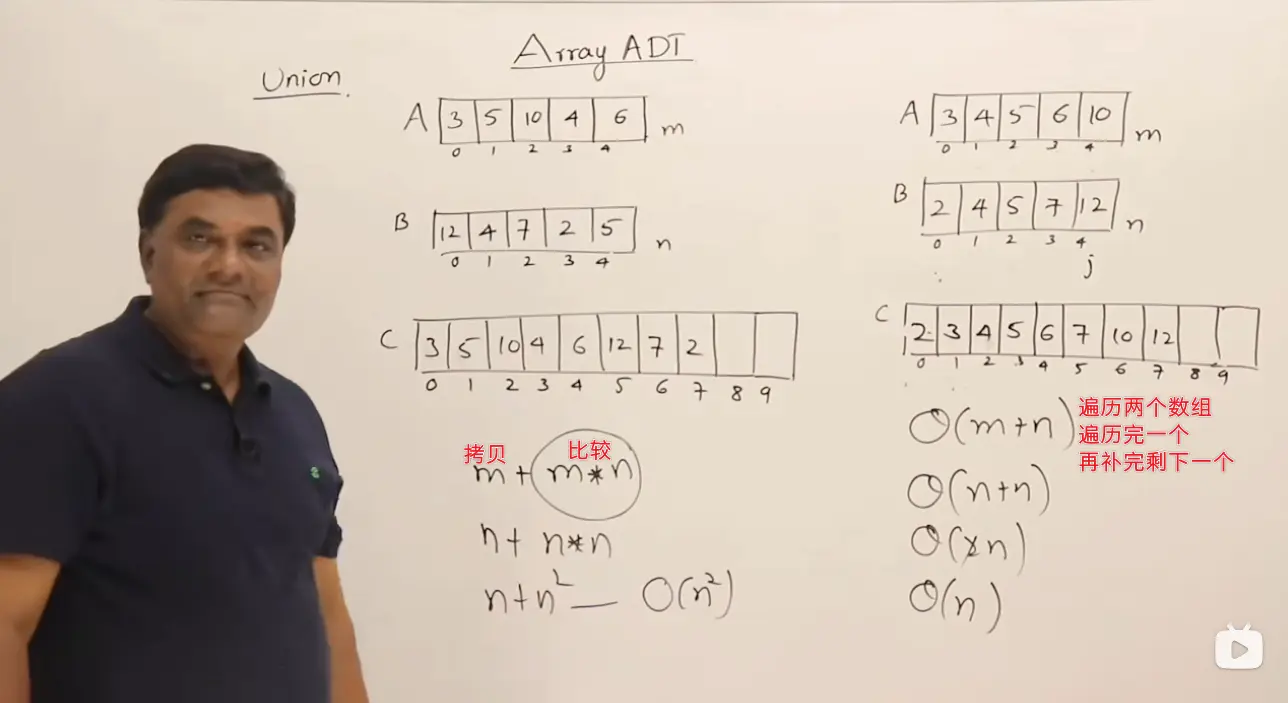 Array ADT
Union.
A 3 5 10 4 6 m
0 1 2 3 4
B 12 4 7 2 5 n
0 1 2 3 4
C 3 5 10 4 6 12 7 2
0 1 2 3 4 5 6 7 8 9
拷贝 比较
m + m*n
n + n*n
n + n² — O(n²)
A 3 4 5 6 10 m
0 1 2 3 4
B 2 4 5 7 12 n
0 1 2 3 4
j
C 2 3 4 5 6 7 10 12
0 1 2 3 4 5 6 7 8 9
O(m+n)
遍历两个数组
遍历完一个
再补完剩下一个
O(n+n)
O(2n)
O(n)